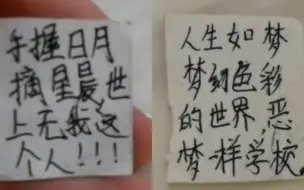 手握日月
摘星晨世
上无我这
个人!!!
人生如梦
梦幻色彩
的世界,恶
梦一样学校